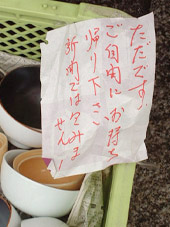 ただです
ご自由にお持ち
帰り下さい
新聞では包みま
せん!